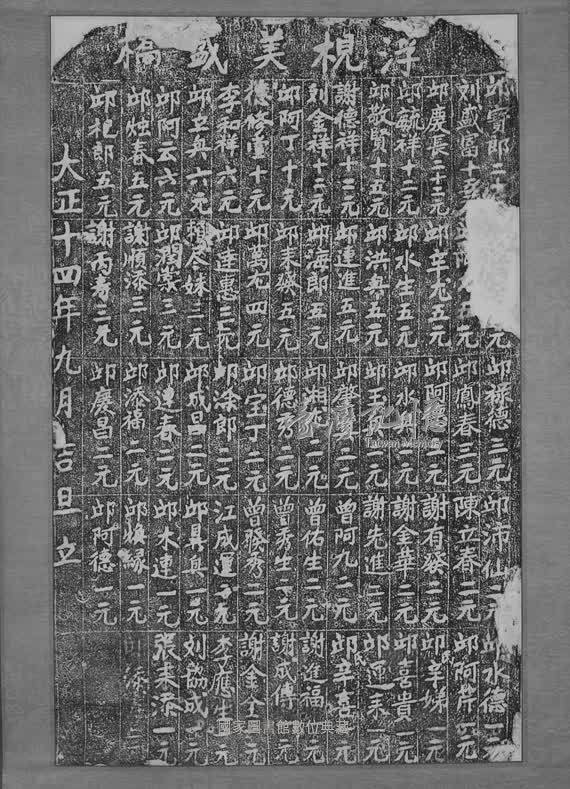 浮梘美盛橋
邱寶郎二十
元邱祿德三元
邱沛仙二元
邱水德一元
刘盛富十五
邱鳳春三元
陳立春二元
邱阿昂一元
邱慶長二十二元
邱辛龙五元
邱阿二元
謝有發二元
邱辛娣一元
邱毓祥十二元
邱水生五元
邱水興二元
謝金華二元
邱喜貴一元
邱敬賢十五元
邱洪興五元
邱玉二元
謝先進二元
邱運来一元
謝德祥十三元
邱連進五元
邱肇二元
曾阿九二元
邱辛喜元
刘金祥十二元
邱海郎五元
邱湘二元
曾佑生二元
謝進福元
邱阿丁十元
邱来五元
邱德秀二元
曾秀生二元
謝成傳
德修堂十元
邱萬元四元
邱宝丁二元
曾發秀一元
謝金元
李和祥六元
邱達惠三元
邱添郎二元
江成運一元
李應生元
邱立興六元
賴尽妹三元
邱成昌二元
邱昌興一元
刘協成一元
邱阿云六元
邱潤三元
邱連春二元
邱水連一元
張来添一元
邱烛春五元
謝順添三元
邱添福二元
邱緣一元
邱添二元
邱祀郎五元
謝丙寿二元
邱慶昌二元
邱阿德一元
大正十四年九月吉旦立
Taiwan Memory
國家圖書館數位典藏